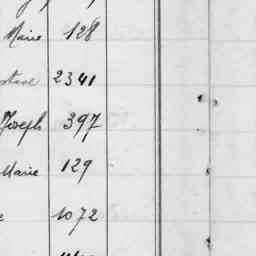 Marie 128
2341
Joseph 397
Marie 129
1072